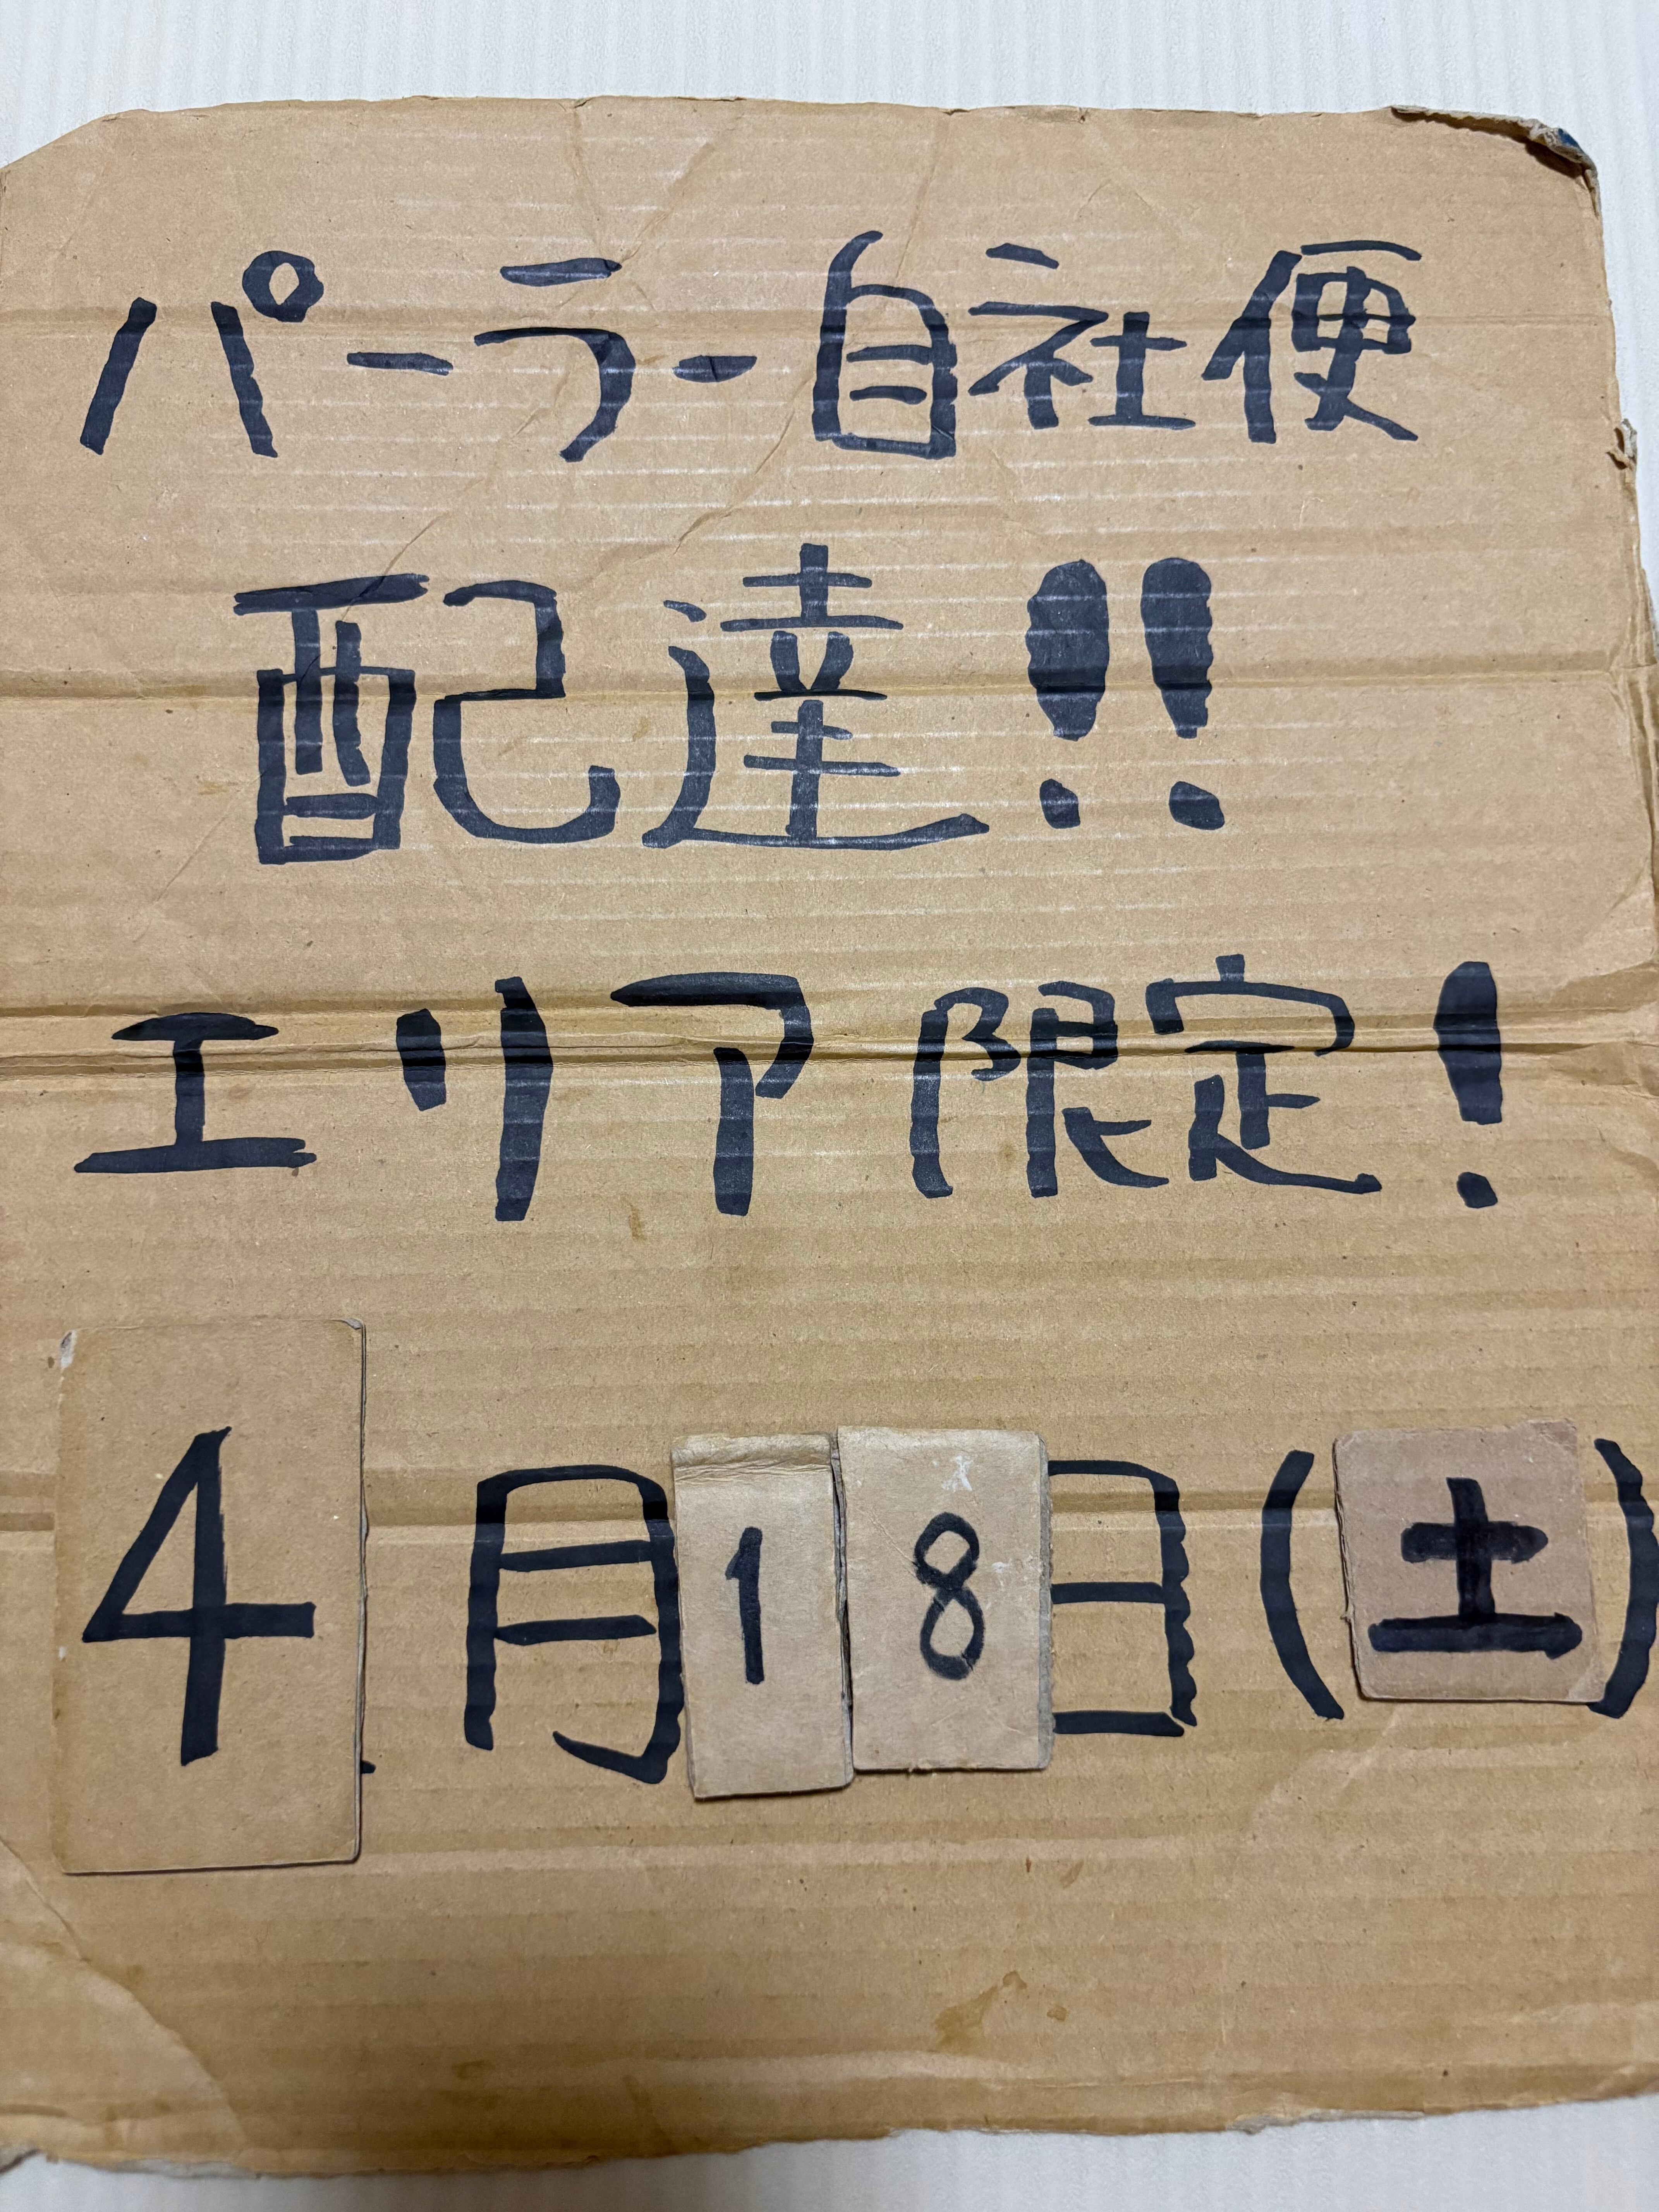 パーラー自社便
配達!!
エリア限定!
4月18日(土)